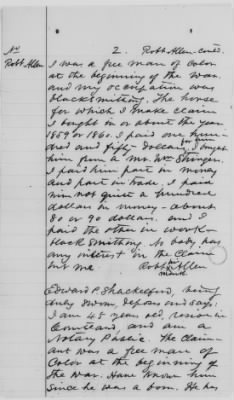 No
Robt Allen
2. Robt Allen-contd.
I was a free man of color
at the beginning of the war.
and my occupation was
blacksmithing. The horse
for which I make claim
I bought in or about the year
1859 or 1860. I paid one hun-
dred and fifty dollars for him I bought
him from a Mr. Wm
I paid him part in money
and part in trade. I paid
him not quite a hundred
dollars in money - about
80 or 90 dollars. and I
paid the other in work-
blacksmithing. No body has
any interest in the claim
but me. Robt his Allen
mark
Edward P. Shackelford, being
duly sworn, deposes and says:
I am 45 years old, reside in
Courtland, and am a
Notary Public. The claim-
ant was a free man of
Color at the beginning of
the war. Have known him
since he was a born. He has